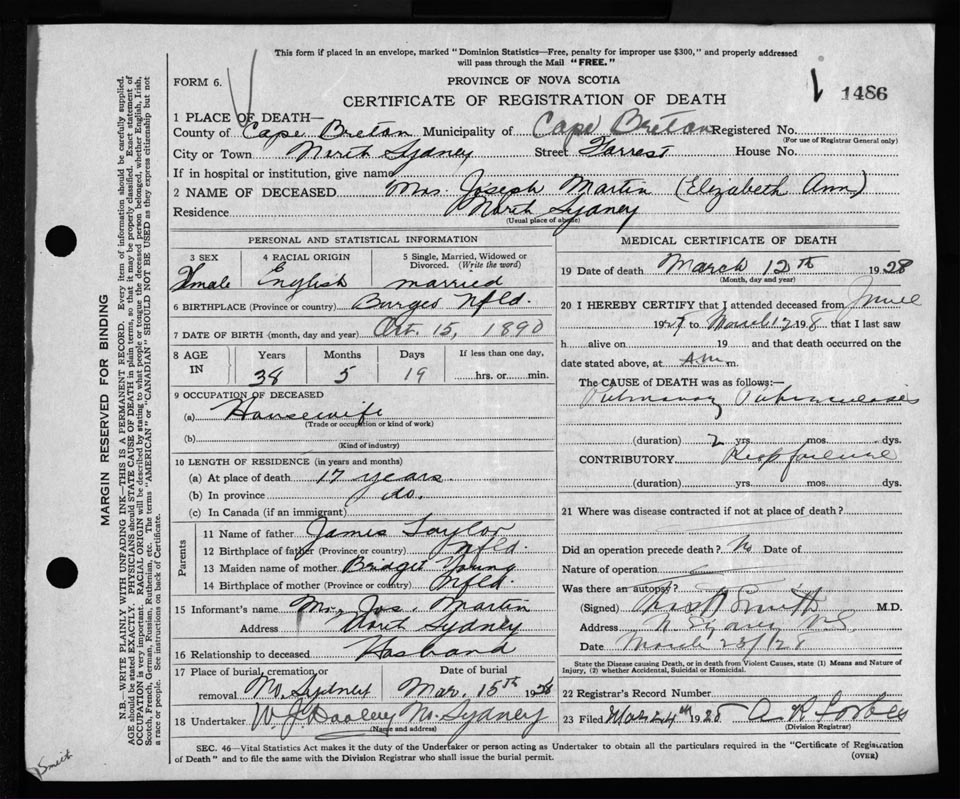 This form if placed in an envelope, marked "Dominion Statistics—Free, penalty for improper use $300," and properly addressed
will pass through the Mail "FREE."
FORM 6.
PROVINCE OF NOVA SCOTIA
1486
CERTIFICATE OF REGISTRATION OF DEATH
1 PLACE OF DEATH—
County of Cape Breton Municipality of Cape Breton Registered No.
(For use of Registrar General only)
City or Town North Sydney Street Forrest House No.
If in hospital or institution, give name
2 NAME OF DECEASED Mrs. Joseph Martin (Elizabeth Ann)
Residence North Sydney
(Usual place of abode)
PERSONAL AND STATISTICAL INFORMATION
3 SEX 4 RACIAL ORIGIN 5 Single, Married, Widowed or
Divorced. (Write the word)
Female English married
6 BIRTHPLACE (Province or country) Burgeo Nfld.
7 DATE OF BIRTH (month, day and year) Oct. 15, 1890
8 AGE IN Years Months Days If less than one day,
38 5 19 hrs. or min.
9 OCCUPATION OF DECEASED
(a) Housewife
(Trade or occupation or kind of work)
(b)
(Kind of industry)
10 LENGTH OF RESIDENCE (in years and months)
(a) At place of death 17 years.
(b) In province do.
(c) In Canada (if an immigrant)
Parents
11 Name of father James Taylor
12 Birthplace of father (Province or country) Nfld.
13 Maiden name of mother Bridget Young
14 Birthplace of mother (Province or country) Nfld.
15 Informant's name Mr. Jos. Martin
Address North Sydney
16 Relationship to deceased Husband
17 Place of burial, cremation, or Date of burial
removal N. Sydney Mar. 15th 1928
18 Undertaker W. J. Dooley N. Sydney
(Name and address)
MEDICAL CERTIFICATE OF DEATH
19 Date of death March 12th 1928
(Month, day and year)
20 I HEREBY CERTIFY that I attended deceased from June
1927 to March 12 1928 that I last saw
h alive on 19 and that death occurred on the
date stated above, at A.m m.
The CAUSE OF DEATH was as follows:—
Pulmonary Tuberculosis
(duration) 2 yrs. mos. dys.
CONTRIBUTORY Resp failure
(duration) yrs. mos. dys.
21 Where was disease contracted if not at place of death?
Did an operation precede death? No Date of
Nature of operation
Was there an autopsy?
(Signed) Smith M.D.
Address N Sydney N.S.
Date March 23/28
State the Disease causing Death, or in death from Violent Causes, state (1) Means and Nature of
Injury, (2) whether Accidental, Suicidal or Homicidal.
22 Registrar's Record Number
23 Filed Mar 24th 1928 A Forbes
(Division Registrar)
SEC. 46—Vital Statistics Act makes it the duty of the Undertaker or person acting as Undertaker to obtain all the particulars required in the "Certificate of Registration
of Death" and to file the same with the Division Registrar who shall issue the burial permit.
(OVER)
MARGIN RESERVED FOR BINDING
N.B.—WRITE PLAINLY WITH UNFADING INK—THIS IS A PERMANENT RECORD. Every item of information should be carefully supplied.
AGE should be stated EXACTLY. PHYSICIANS should STATE CAUSE OF DEATH in plain terms, so that it may be properly classified. Exact statement of
OCCUPATION is very important. RACIAL ORIGIN will be described by stating to what people or tongue the deceased person belonged, whether English, Irish,
Scotch, French, German, Russian, Ruthenian, etc. The terms "AMERICAN" or "CANADIAN" SHOULD NOT BE USED as they express citizenship but not
a race or people. See instructions on back of Certificate.
Smith